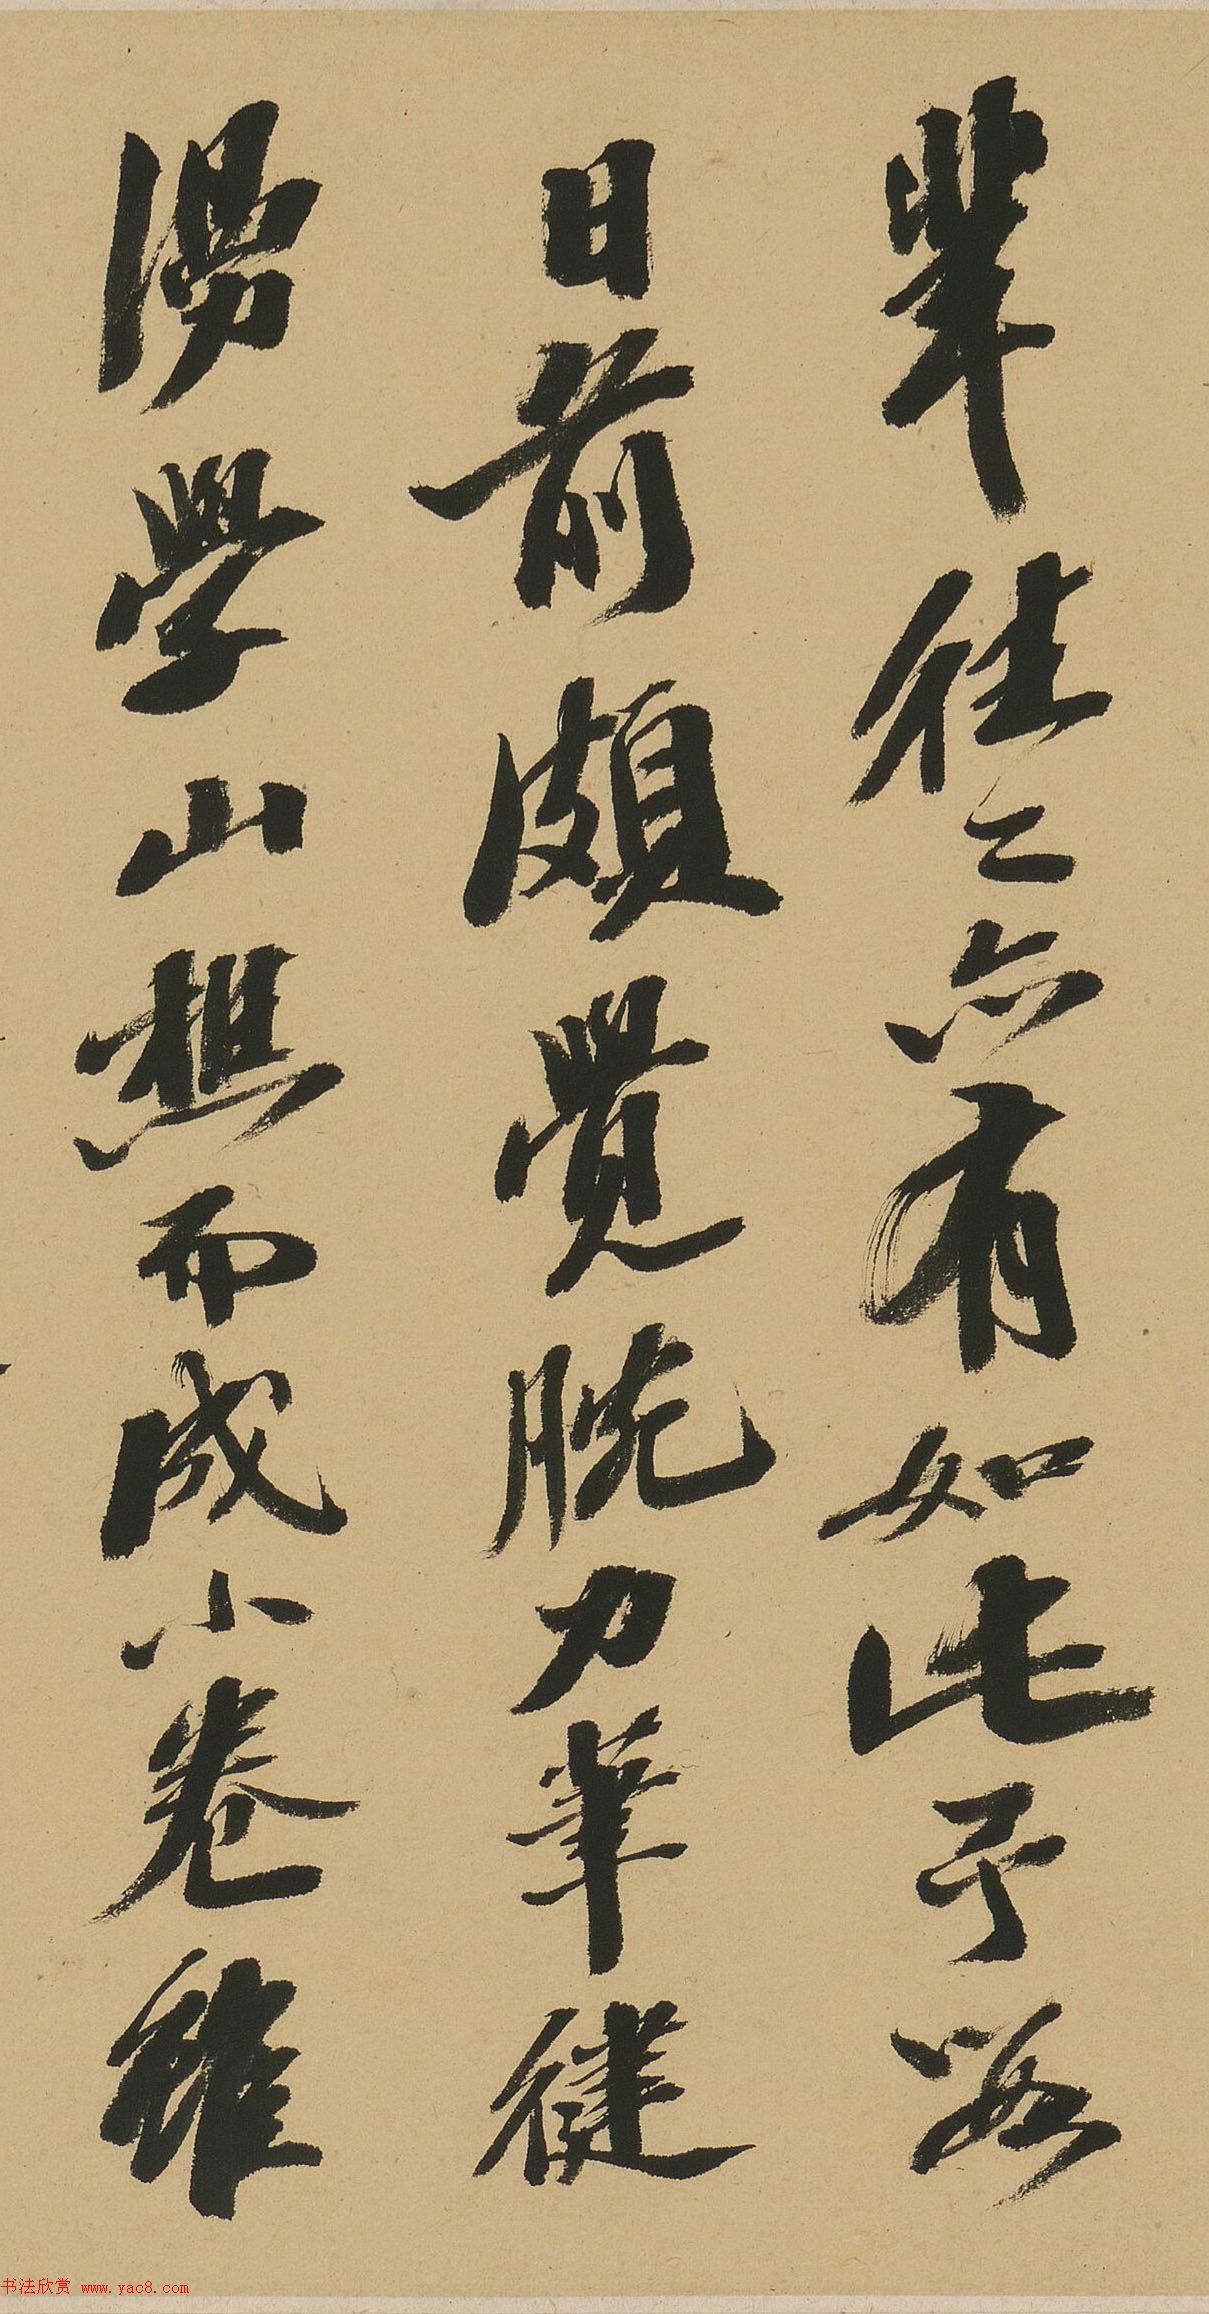 輩往々亦有如此予數
日前頗覺腕力筆健
漫學山樵而成小卷雖
书法欣赏 www.yac8.com